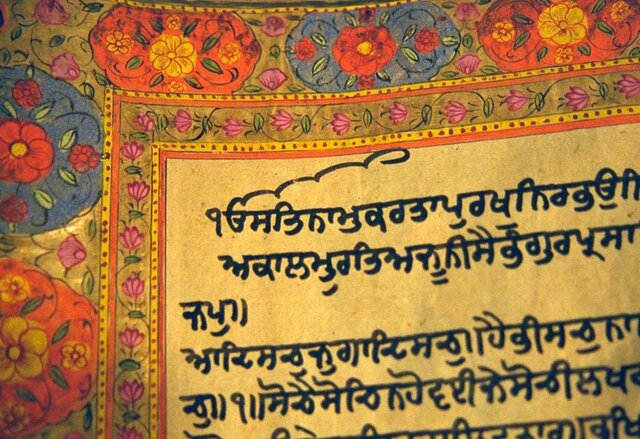 ੴਸਤਿਨਾਮੁਕਰਤਾਪੁਰਖੁਨਿਰਭਉਨਿ
ਅਕਾਲਮੂਰਤਿਅਜੂਨੀਸੈਭੰਗੁਰਪ੍ਰਸਾ
ਜਪੁ॥
ਆਦਿਸਚੁਜੁਗਾਦਿਸਚੁ॥ਹੈਭੀਸਚੁਨਾ
ਚੁ॥੧॥ਸੋਚੈਸੋਚਿਨਹੋਵਈਜੇਸੋਚੀਲਖਵ